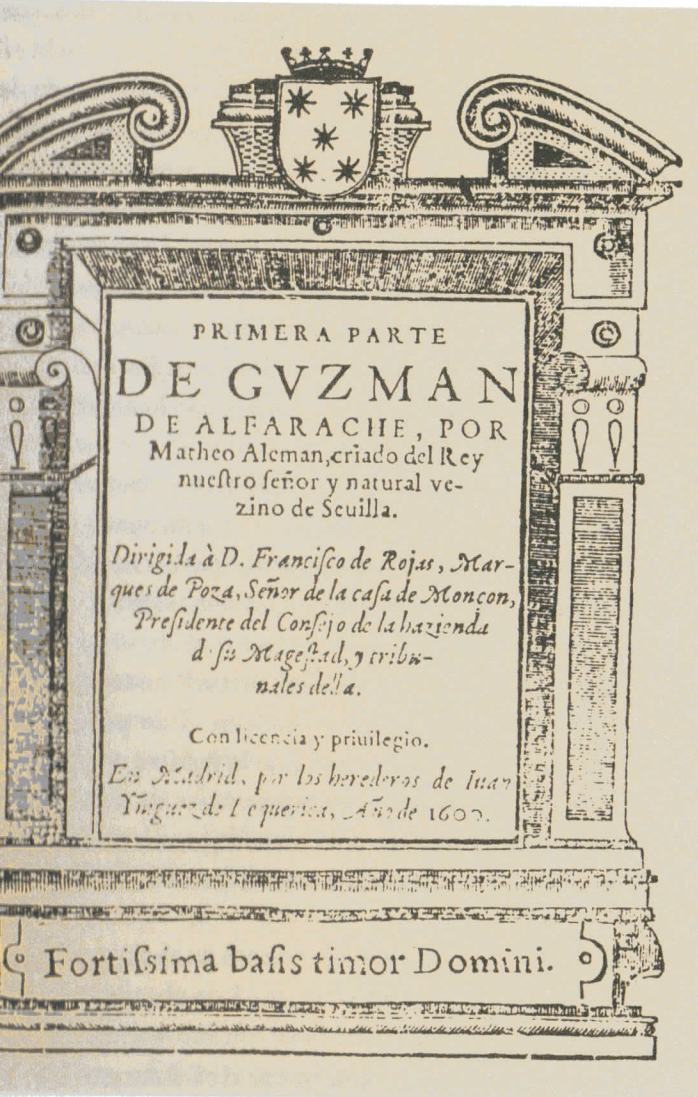 PRIMERA PARTE
DE GVZMAN
DE ALFARACHE, POR
Matheo Aleman, criado del Rey
nueſtro ſeñor y natural ve-
zino de Seuilla.
Dirigida à D. Franciſco de Rojas, Mar-
ques de Poza, Señor de la caſa de Moncon,
Preſidente del Conſejo de la hazienda
d ſu Mageſtad, y tribu-
nales della.
Con licencia y priuilegio.
En Madrid, por los herederos de Iuan
Yñiguez de Lequerica, Año de 1600.
Fortiſsima baſis timor Domini.